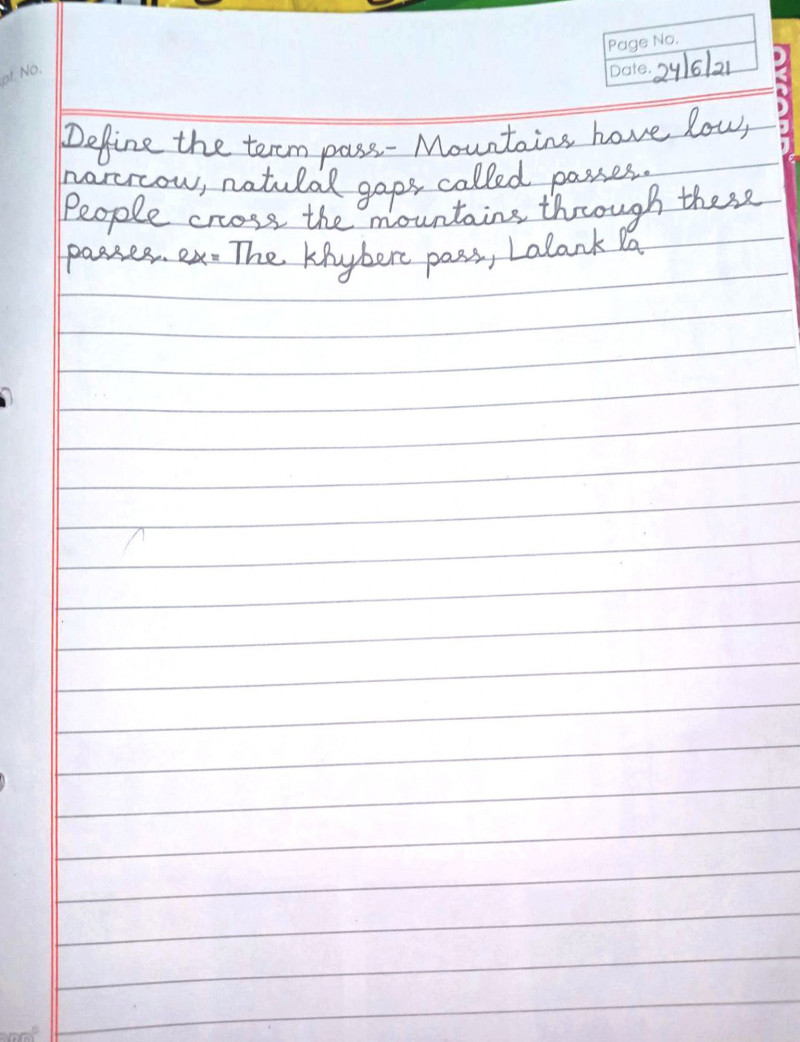 pt. No.
Page No.
Date. 24/6/21
Define the term pass- Mountains have low,
narrow, natulal gaps called passes.
People cross the mountains through these
passes. ex= The Khyber pass, Lalank la